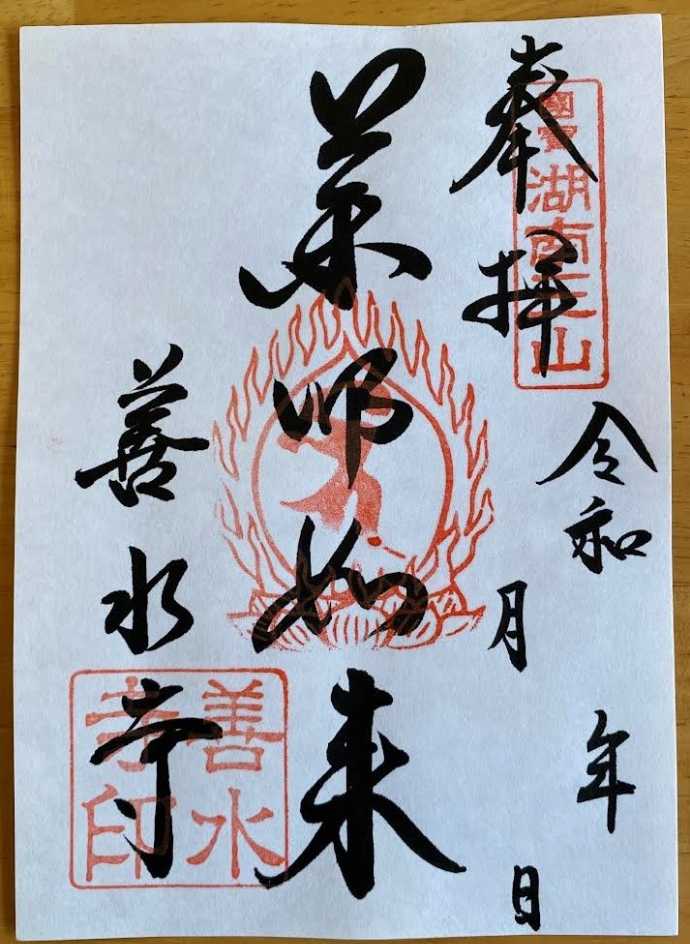 奉拝
國寶 湖南三山
令和 年
月 日
薬師如来
善水寺
善水寺印